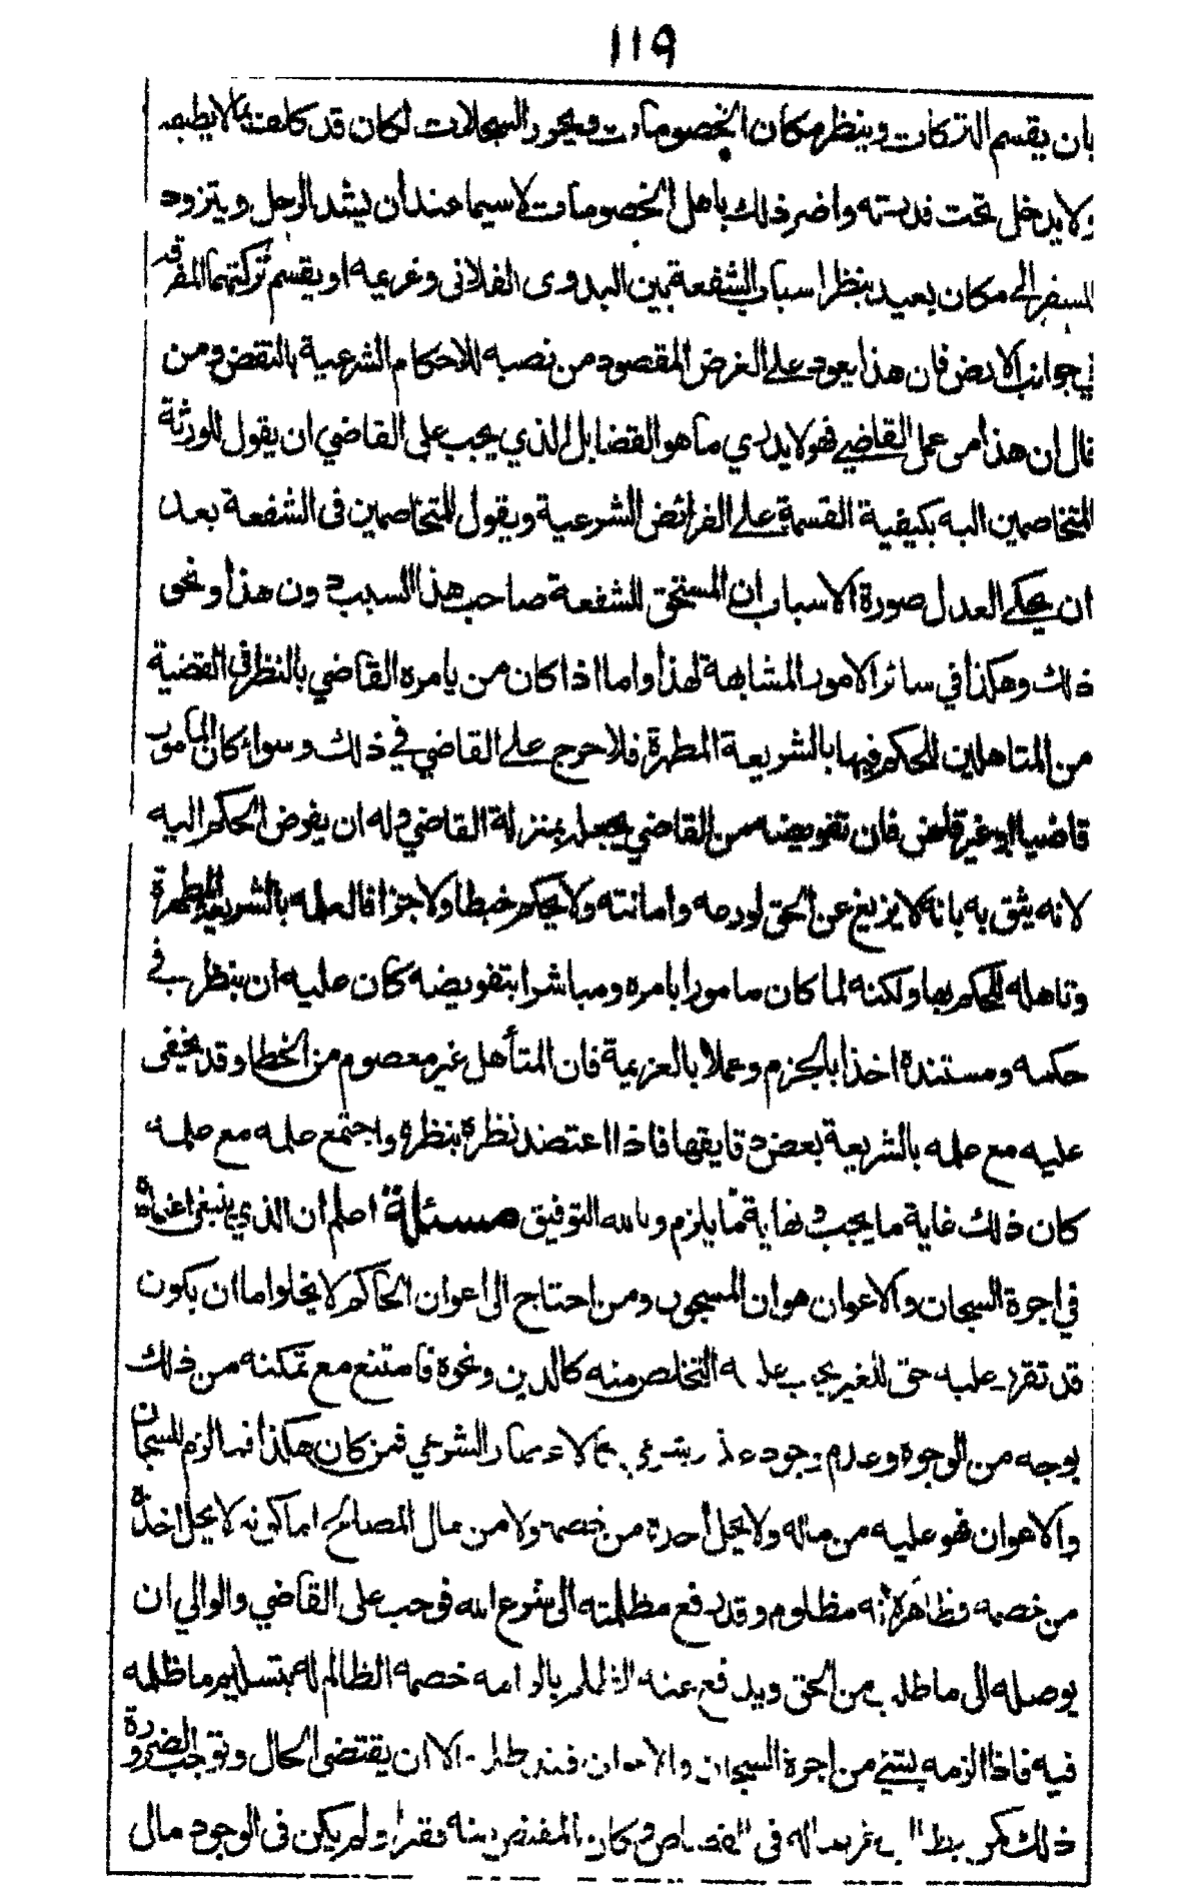 119
بان يقسم التركات وينظر مكان الخصومات ويحرر السجلات لكان قد كلف بما لا يطيقه
ولا يدخل تحت قدرته واضر ذلك باهل الخصومات لاسيما عند أن يشد الرحل ويتزود
لسفر الى مكان بعيد ينظر اسباب الشفعة بين البدوى الفلانى وغريمه او يقسم تركتهما المفرقة
في جوانب الارض فان هذا يعود على الغرض المقصود من نصبه للاحكام الشرعية بالنقض ومن
قال ان هذا من عمل القاضي فهو لا يدري ما هو القضا بل الذي يجب على القاضي ان يقول للورثة
المتخاصمين اليه بكيفية القسمة على الفرائض الشرعية ويقول للمتخاصمين فى الشفعة بعد
ان يحكي العدل صورة الاسباب ان المستحق للشفعة صاحب هذا السبب دون هذا ونحو
ذلك وهكذا في سائر الامور المشابهة لهذا واما اذا كان من يامره القاضي بالنظر في القضية
من المتاهلين للحكم فيها بالشريعة المطهرة فلا حرج على القاضي في ذلك وسواء كان المامور
قاضيا او غير قاض فان تفويضه من القاضي يجعله بمنزلة القاضي وله ان يفوض الحكم اليه
لانه يثق به بانه لا يزيغ عن الحق لورعه وامانته ولا يحكم خبطا ولا جزافا لعلمه بالشريعة المطهرة
وتاهله للحكم بها ولكنه لما كان مامورا بامره ومباشرا بتفويضه كان عليه ان ينظر في
حكمه ومستنده اخذا بالجزم وعملا بالعزيمة فان المتأهل غير معصوم من الخطا وقد يخفى
عليه مع علمه بالشريعة بعض دقايقها فاذا اعتضد نظره بنظره واجتمع علمه مع علمه
كان ذلك غاية ما يجب ونهاية ما يلزم وبالله التوفيق مسئلة اعلم ان الذي ينبغي اعتماده
في اجرة السجان والاعوان هو ان المسجون ومن احتاج الى اعوان الحاكم لا يخلوا اما ان يكون
قد تقرر عليه حق للغير يجب عليه التخلص منه كالدين ونحوه فامتنع مع تمكنه من ذلك
بوجه من الوجوه وعدم وجود عذر شرعي كالاعسار الشرعي فمن كان هكذا فما لزم للسجان
والاعوان فهو عليه من ماله ولا يحل اخذه من خصمه ولا من مال المصالح اما كونه لا يحل اخذه
من خصمه فظاهر لانه مظلوم وقد رفع مظلمته الى شرع الله فوجب على القاضي والوالي ان
يوصله الى ما طلب من الحق ويدفع عنه الظلم بالزامه خصمه الظالم له بتسليم ما ظلمه
فيه فاذا الزمه بشئ من اجرة السجان والاعوان فقد ظلمه الا ان يقتضى الحال وتوجب الضرورة
ذلك كمن يطالب غريما له فى القصاص وكان المقتص منه فقيرا ولم يكن فى الوجود مال